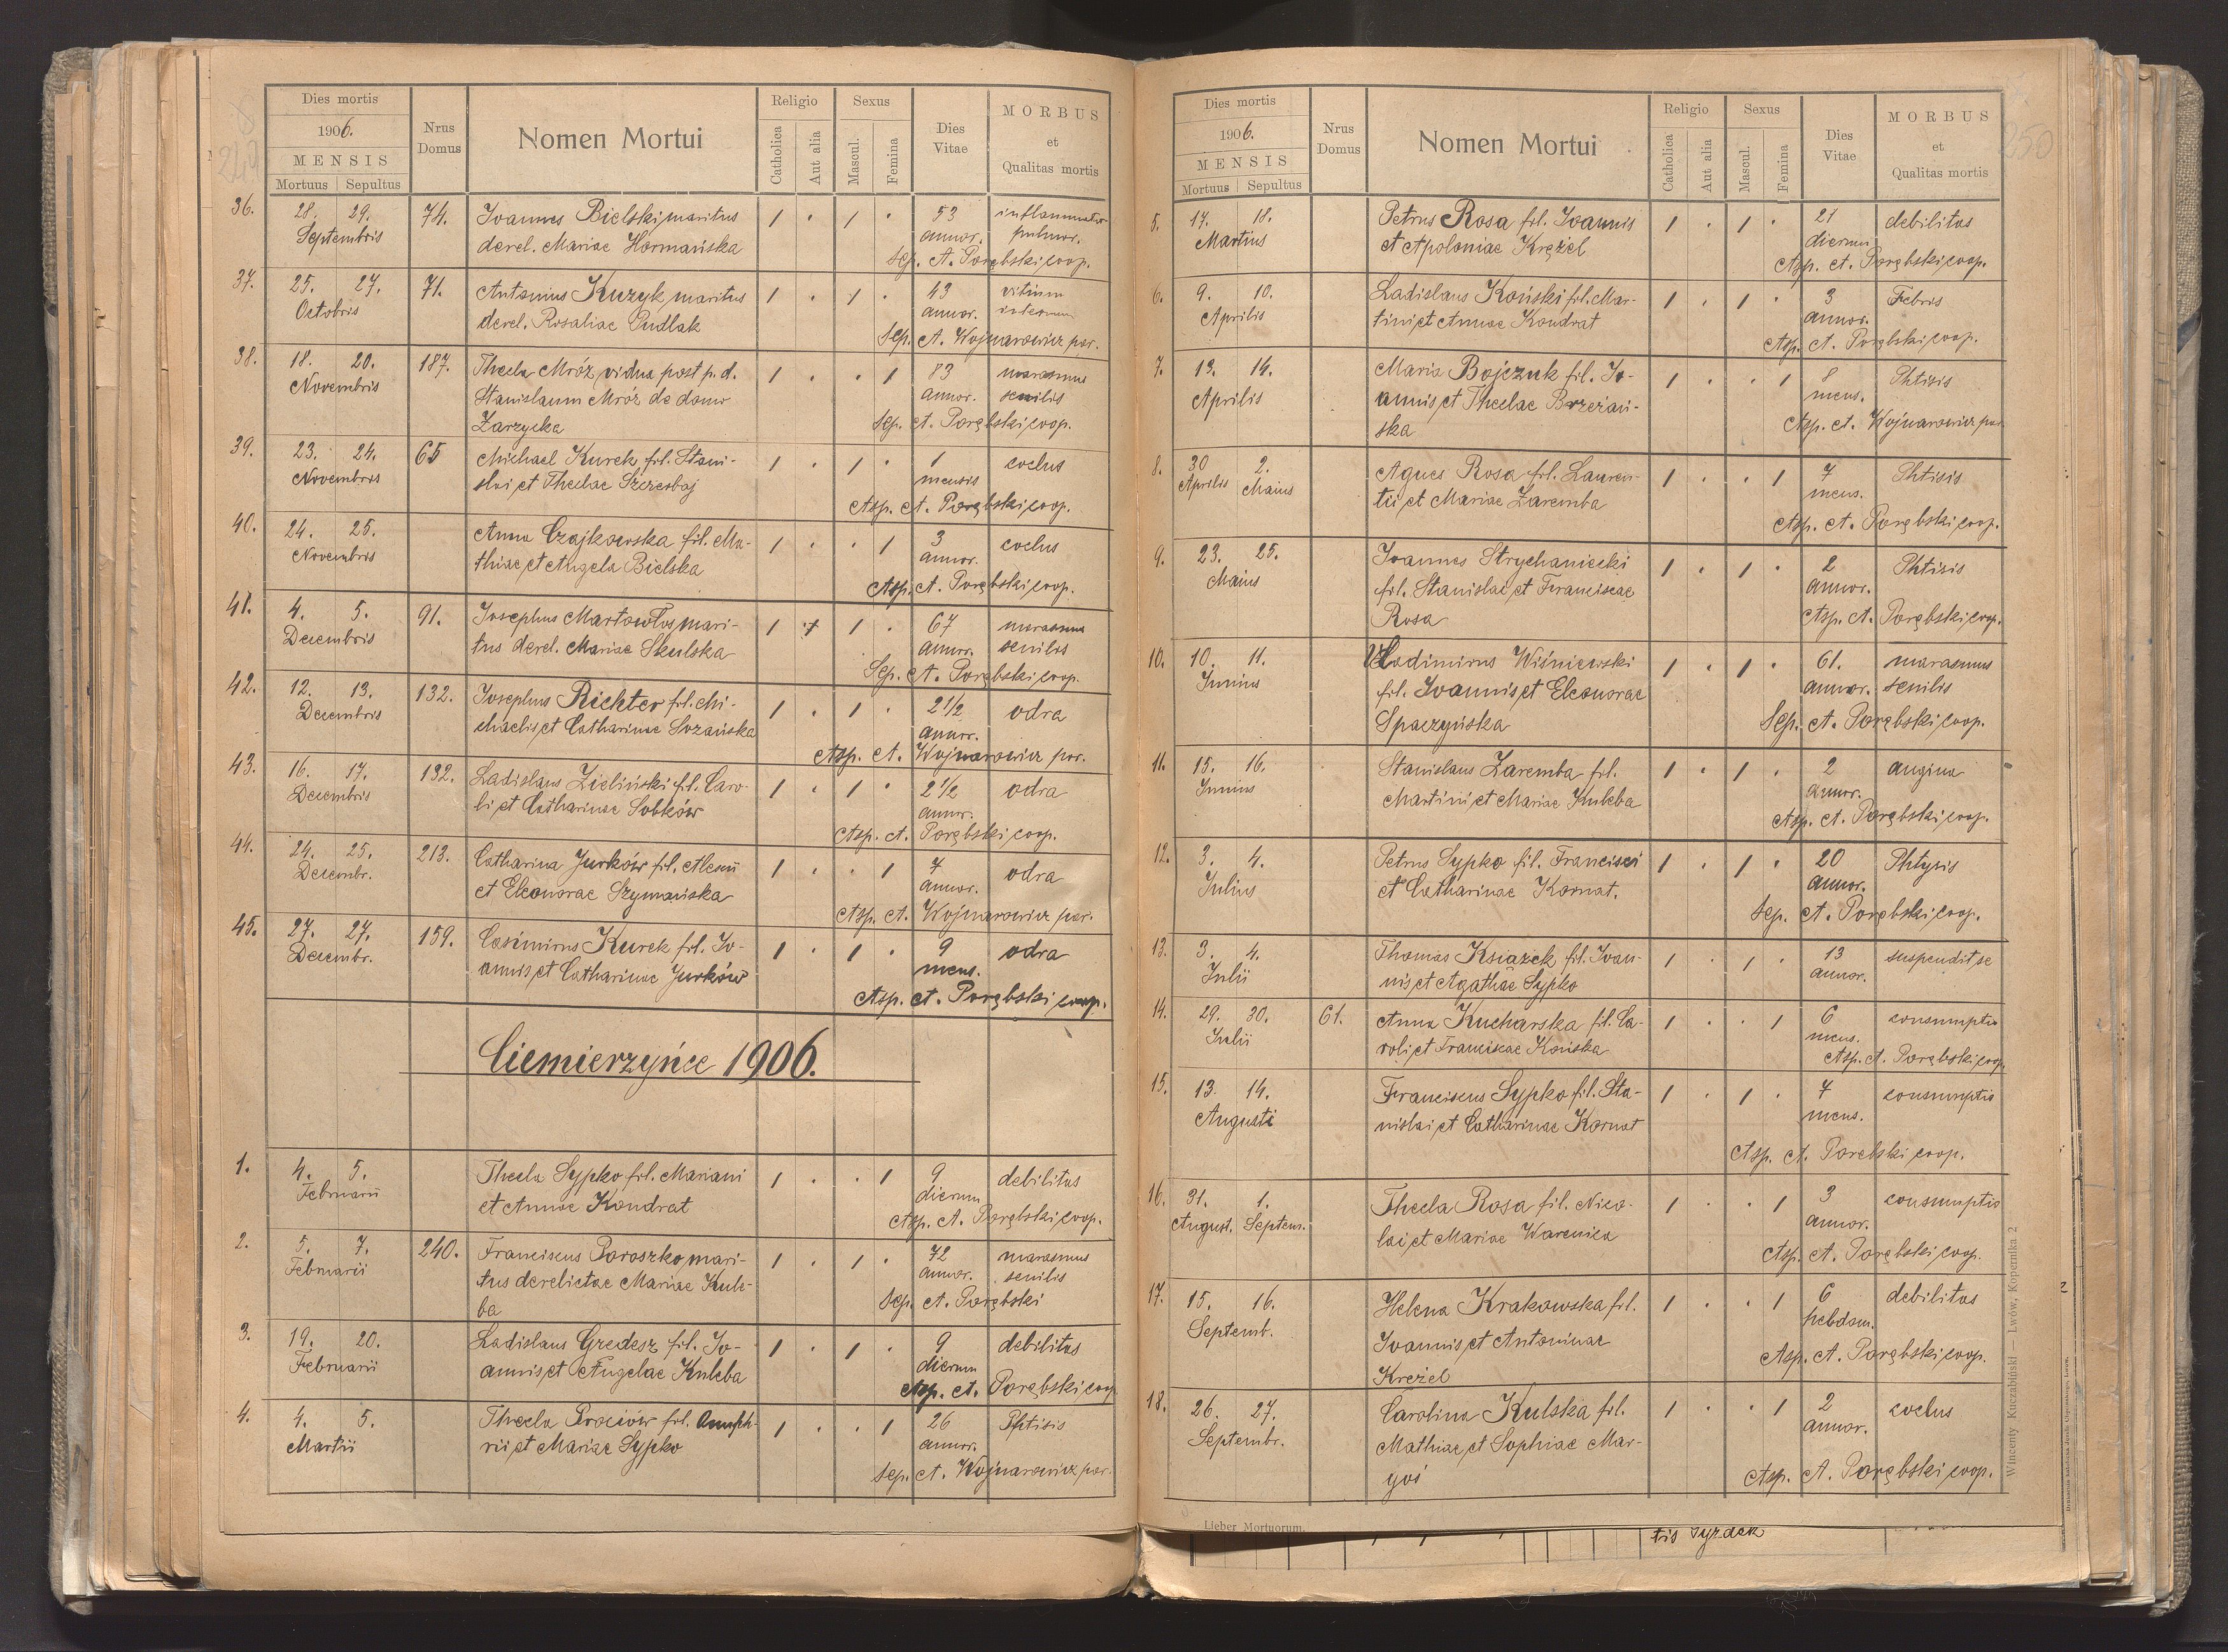 249
Dies mortis
1906.
MENSIS
Mortuus Sepultus
Nrus Domus
Nomen Mortui
Religio
Catholica
Aut alia
Sexus
Mascul.
Femina
Dies Vitae
MORBUS
et
Qualitas mortis
36. 28. 29. 74. Ioannes Bielski maritus 1 . 1 . 53 inflammatio
Septembris derel. Mariae Hormańska annor. pulmor.
Sep. A. Porębski coop.
37. 25. 27. 71. Antonius Kuzyk maritus 1 . 1 . 43 vitium
Octobris derel. Rosaliae Pudlak annor. internum
Sep. A. Wojnarowicz par.
38. 18. 20. 187. Thecla Mróz vidua post p. d. 1 . . 1 83 marasmus
Novembris Stanislaum Mróz de domo annor. senilis
Zarzycka Sep. A. Porębski coop.
39. 23. 24. 65 Michael Kurek fil. Stani- 1 . 1 . 1 coclus
Novembris slai et Theclae Szczerbaj mensis
Asp. A. Porębski coop.
40. 24. 25. Anna Czajkowska fil. Ma- 1 . . 1 3 coclus
Novembris thiae et Angela Bielska annor.
Asp. A. Porębski coop.
41. 4. 5. 91. Josephus Martowłos mari- 1 . 1 . 67 marasmus
Decembris tus derel. Mariae Skulska annor. senilis
Sep. A. Porębski coop.
42. 12. 13. 132. Josephus Richter fil. Mi- 1 . 1 . 2 1/2 odra
Decembris chaelis et Catharinae Sozańska annor.
Asp. A. Wojnarowicz par.
43. 16. 17. 132. Ladislaus Zieliński fil. Caro- 1 . 1 . 2 1/2 odra
Decembris li et Catharinae Sobków annor.
Asp. A. Porębski coop.
44. 24. 25. 213. Catharina Jurków fil. Alexii 1 . . 1 7 odra
Decembr. et Eleonorae Szymańska annor.
Asp. A. Wojnarowicz par.
45. 27. 27. 159. Casimirus Kurek fil. Jo- 1 . 1 . 9 odra
Decembr. annis et Catharinae Jurków mens.
Asp. A. Porębski coop.
Ciemierzyńce 1906.
1. 4. 5. Thecla Sypko fil. Mariani 1 . . 1 9 debilitas
Februarii et Annae Kondrat dierum
Asp. A. Porębski coop.
2. 5. 7. 240. Franciscus Poroszko mari- 1 . 1 . 72 marasmus
Februarii tus derelictae Mariae Kule- annor. senilis
ba Sep. A. Porębski
3. 19. 20. Ladislaus Gredesz fil. Jo- 1 . 1 . 9 debilitas
Februarii annis et Angelae Kuleba dierum
Asp. A. Porębski coop
4. 4. 5. Thecla Prociów fil. Onuph- 1 . . 1 26 Phtisis
Martii rii et Mariae Sypko annor.
Sep. A. Wojnarowicz par.
250
Dies mortis
1906.
MENSIS
Mortuus Sepultus
Nrus Domus
Nomen Mortui
Religio
Catholica
Aut alia
Sexus
Mascul.
Femina
Dies Vitae
MORBUS
et
Qualitas mortis
5. 17. 18. Petrus Rosa fil. Ioannis 1 . 1 . 21 debilitas
Martius et Apoloniae Krężel dierum
Asp. A. Porębski coop.
6. 9. 10. Ladislaus Koński fil. Mar- 1 . 1 . 3 Febris
Aprilis tini et Annae Kondrat annor.
Asp. A. Porębski coop.
7. 13. 14. Maria Bojczuk fil. Jo- 1 . . 1 8 Phtisis
Aprilis annis et Theclae Brzeżań- mens.
ska Asp. A. Wojnarowicz par.
8. 30 2. Agnes Rosa fil. Lauren- 1 . . 1 7 Phtisis
Aprilis Maius tii et Mariae Zaremba mens.
Asp. A. Porębski coop.
9. 23. 25. Ioannes Strychaniecki 1 . 1 . 2 Phtisis
Maius fil. Stanislai et Franciscae annor.
Rosa Asp. A. Porębski coop.
10. 10. 11. Vladimirus Wiśniewski 1 . 1 . 61. marasmus
Junius fil. Ioannis et Eleonorae annor. senilis
Spaczyńska Sep. A. Porębski coop.
11. 15. 16. Stanislaus Zaremba fil. 1 . 1 . 2 angina
Junius Martini et Mariae Kuleba annor.
Asp. A. Porębski coop.
12. 3. 4. Petrus Sypko fil. Francisci 1 . 1 . 20 Phtysis
Julius et Catharinae Kornat. annor.
Sep. A. Porębski coop.
13. 3. 4. Thomas Książek fil. Ioan- 1 . 1 . 13 suspendit se
Julii nis et Agathae Sypko annor.
14. 29. 30. 61. Anna Kucharska fil. Ca- 1 . . 1 6 consumptio
Julii roli et Franciscae Końska mens.
Asp. A. Porębski coop.
15. 13. 14. Franciscus Sypko fil. Sta- 1 . 1 . 7 consumptio
Augusti nislai et Catharinae Kornat mens.
Asp. A. Porębski coop.
16. 31. 1. Thecla Rosa fil. Nico- 1 . . 1 3 consumptio
August. Septem. lai et Mariae Warenica annor.
Asp. A. Porębski coop.
17. 15. 16. Helena Krakowska fil. 1 . . 1 6 debilitas
Septemb. Ioannis et Antoninae hebdom.
Krężel Asp. A. Porębski coop.
18. 26. 27. Carolina Kulska fil. 1 . . 1 2 coclus
Septembr. Mathiae et Sophiae Mar- annor.
goś Asp. A. Porębski coop.
Lieber Mortuorum.
Wincenty Kuczabiński — Lwów, Kopernika 2
tis Syrdek